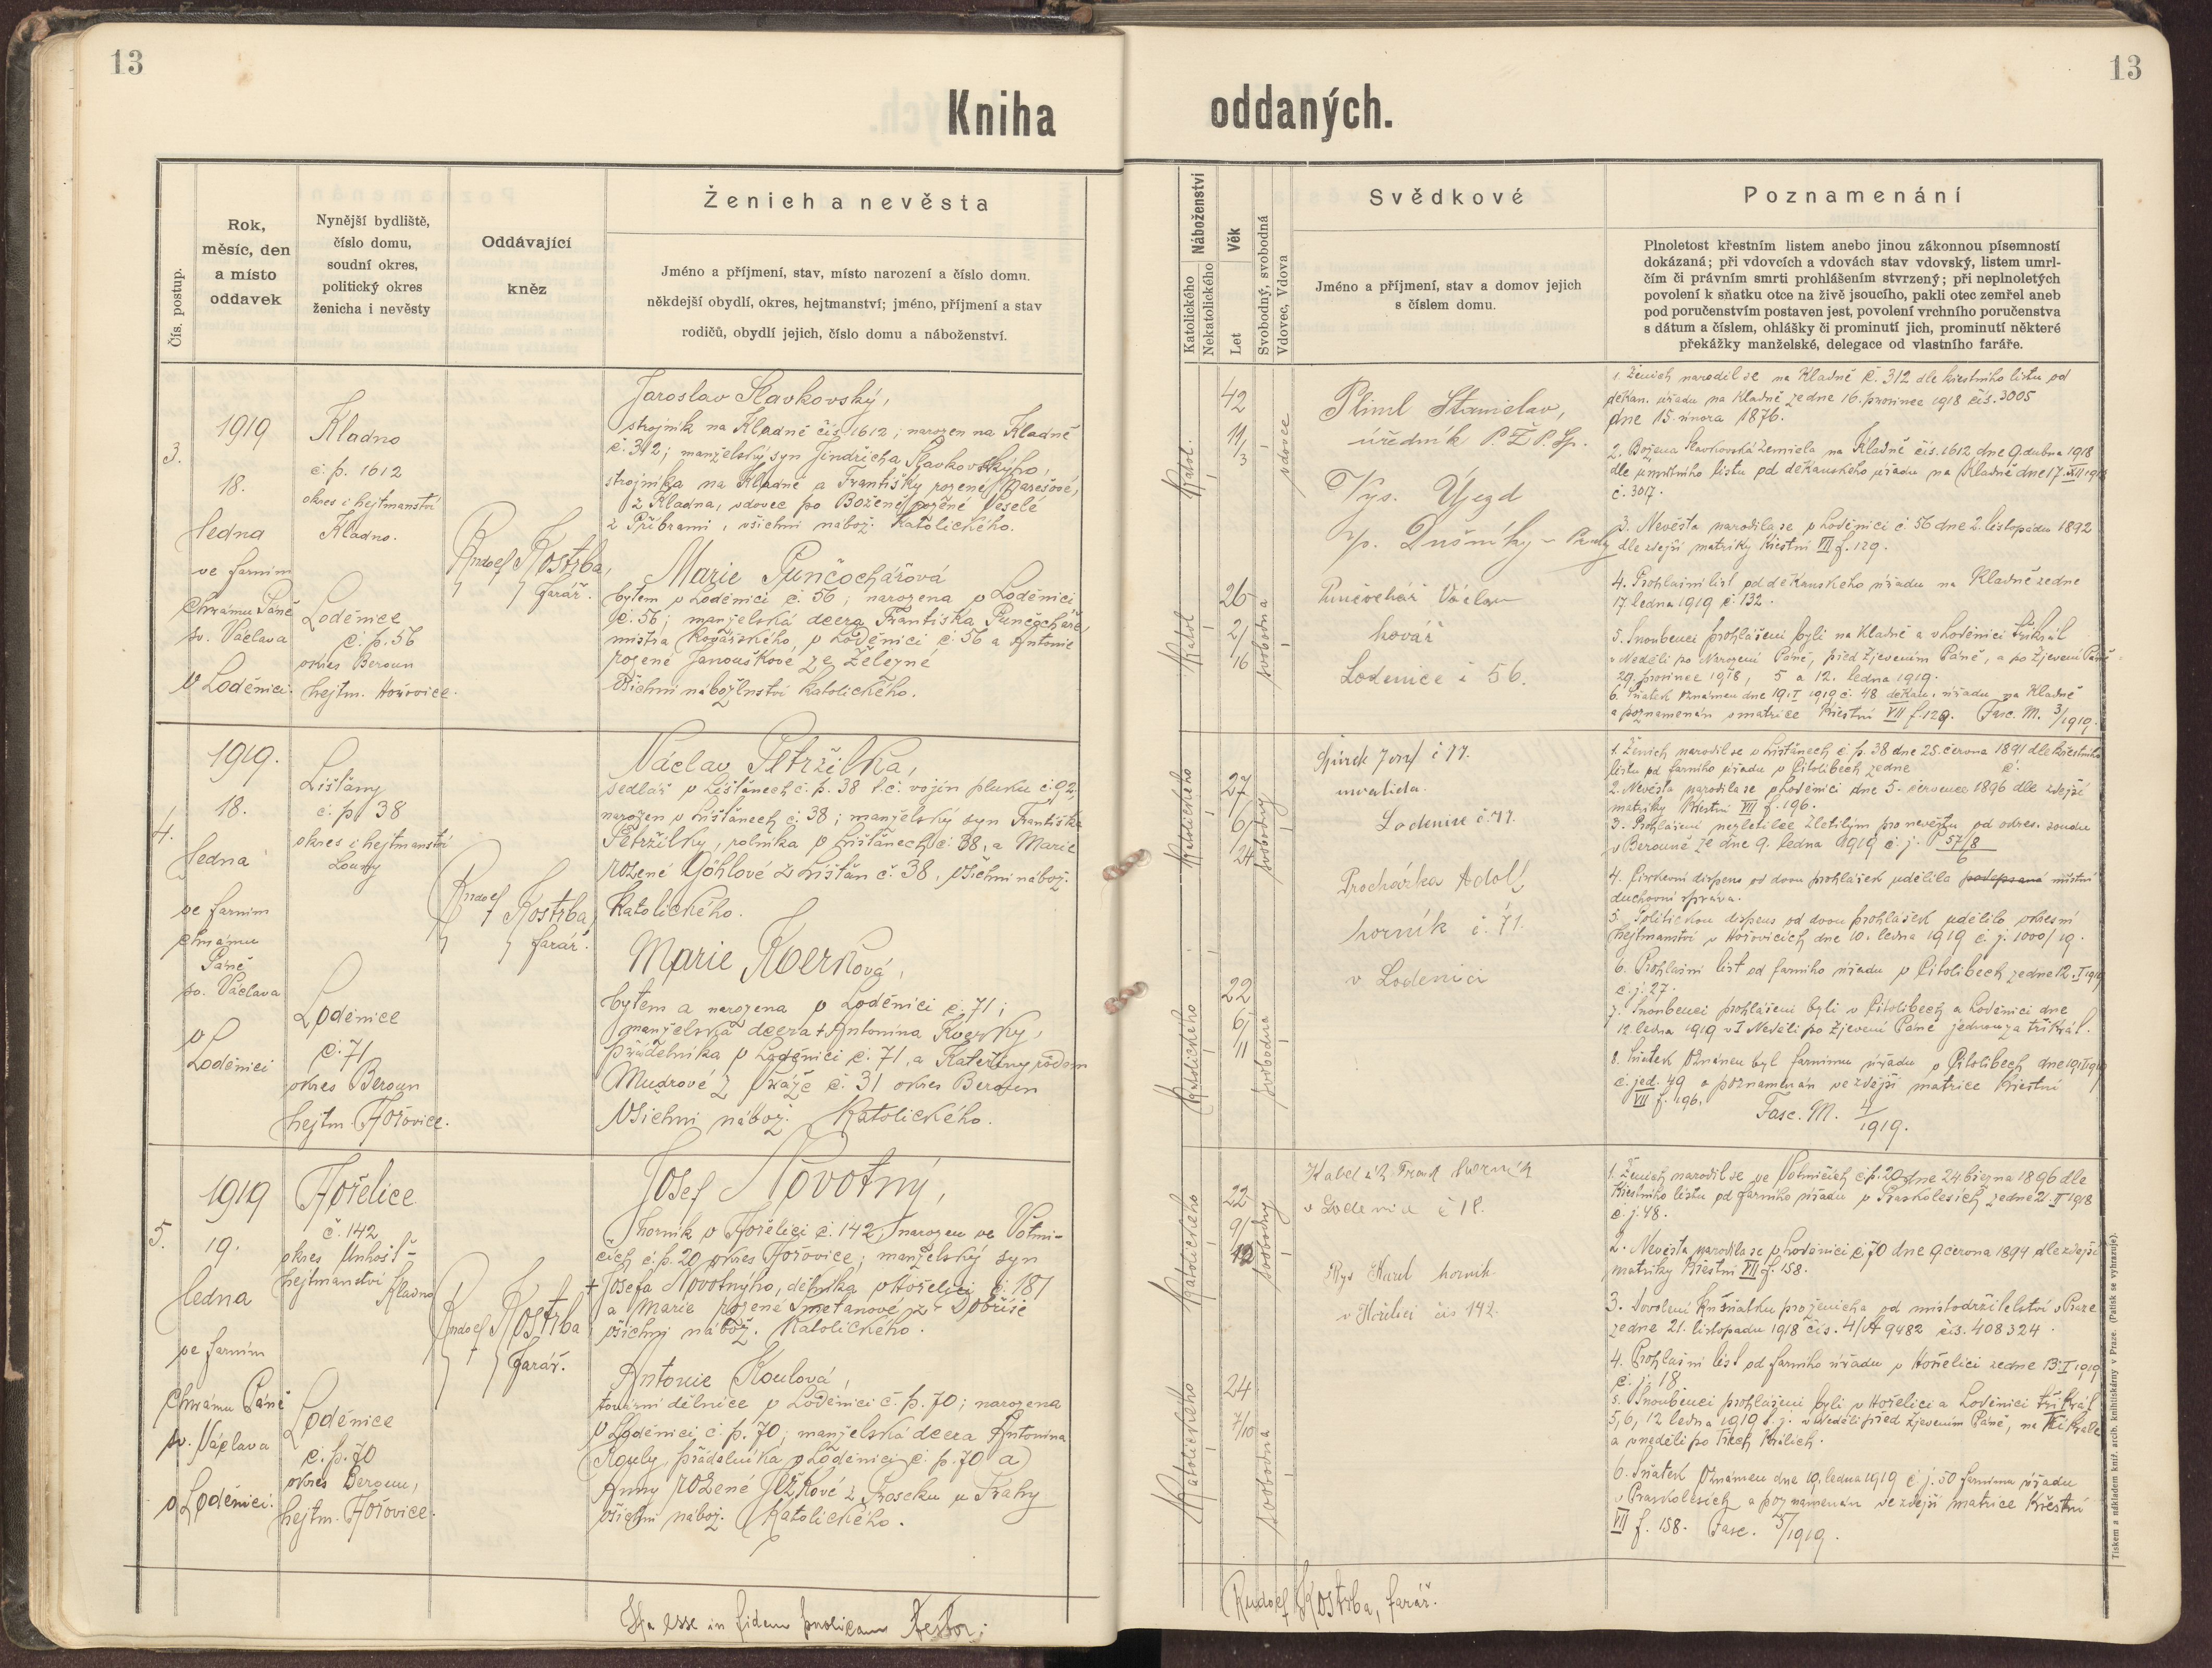 13
13
Kniha
oddaných.
Čís. postup.
Rok,
měsíc, den
a místo
oddavek
Nynější bydliště,
číslo domu,
soudní okres,
politický okres
ženicha i nevěsty
Oddávající
kněz
Ženich a nevěsta
Jméno a příjmení, stav, místo narození a číslo domu.
někdejší obydlí, okres, hejtmanství; jméno, příjmení a stav
rodičů, obydlí jejich, číslo domu a náboženství.
Náboženství
Katolického
Nekatolického
Věk
Let
Svobodný, svobodná
Vdovec, Vdova
Svědkové
Jméno a příjmení, stav a domov jejich
s číslem domu.
Poznamenání
Plnoletost křestním listem anebo jinou zákonnou písemností
dokázaná; při vdovcích a vdovách stav vdovský, listem umrl-
čím či právním smrti prohlášením stvrzený; při neplnoletých
povolení k sňatku otce na živě jsoucího, pakli otec zemřel aneb
pod poručenstvím postaven jest, povolení vrchního poručenstva
s dátum a číslem, ohlášky či prominutí jich, prominutí některé
překážky manželské, delegace od vlastního faráře.
3.
1919
18.
ledna
ve farním
Chrámu Páně
sv. Václava
v Loděnici.
Kladno
č. p. 1612
okres i hejtmanství
Kladno.
Loděnice
č. p. 56
okres Beroun
hejtm. Hořovice.
Rudolf Kostrba,
farář.
Jaroslav Slavkovský,
strojník na Kladně čís. 1612; narozen na Kladně
č. 312; manželský syn Jindřicha Slavkovského,
strojníka na Kladně a Františky rozené Marešové,
z Kladna, vdovec po Boženě rozené Veselé
z Příbrami, všichni nábož. katolického.
Marie Punčochářová
bytem v Loděnici č. 56; narozena v Loděnici
č. 56; manželská dcera Františka Punčocháře,
mistra kovářského, v Loděnici č. 56 a Antonie
rozené Janouškové ze Železné,
všichni náboženství katolického.
Katol.
42
11/3
vdovec
Katol
26
2/16
svobodna
Pliml Stanislav,
úředník P. Ž. P. Sp.
Vys. Újezd
p. Dušníky
Punčochář Václav
kovář
Lodenice č 56.
1. Ženich narodil se na Kladně č. 312 dle křestního listu od
děkan. úřadu na Kladně ze dne 16. prosince 1918 čís. 3005
dne 15. února 1876.
2. Božena Slavkovská zemřela na Kladně čís. 1612 dne 9. dubna 1918
dle úmrtního listu od děkanského úřadu na Kladně dne 17. XII 1918
č. 3017.
3. Nevěsta narodila se v Loděnici č. 56 dne 2. listopadu 1892
dle zdejší matriky křestní VII f. 129.
4. Prohlašní list od děkanského úřadu na Kladně ze dne
17. ledna 1919 č. 132.
5. Snoubenci prohlášeni byli na Kladně a v Loděnici třikrát
v Neděli po Narození Páně, před Zjevením Páně, a po Zjevení Páně
29. prosince 1918, 5 a 12. ledna 1919.
6. Sňatek oznámen dne 19. I 1919 č. 48 děkan. úřadu na Kladně
a poznamenán v matrice křestní VII f. 129. Fasc. M. 3/1919.
4.
1919.
18.
ledna
ve farním
chrámu
Páně
sv. Václava
v
Loděnici
Lišťany
č. p. 38
okres i hejtmanství
Louny
Loděnice
č. 71
okres Beroun
hejtm. Hořovice.
Rudolf Kostrba,
farář.
Václav Petržilka,
sedlář v Lišťanech č. p. 38 t. č. vojín pluku č. 92,
narozen v Lišťanech č. 38; manželský syn Františka
Petržilky, rolníka v Lišťanech č. 38, a Marie
rozené Göhlové z Lišťan č. 38, všichni nábož.
katolického.
Marie Kverková,
bytem a narozena v Loděnici č. 71;
manželská dcera + Antonína Kverky,
přádelníka v Loděnici č. 71, a Kateřiny rodem
Mudrové z č. 31 okres Beroun
všichni nábož. katolického.
Katolického
27
6/24
svobodný
Katolického
22
6/11
svobodná
Josef č 77.
invalida.
Lodenice č. 77.
Procházka Adolf
horník č. 71.
v Lodenici
1. Ženich narodil se v Lišťanech č. p. 38 dne 25. června 1891 dle křestního
listu od farního úřadu v Citolibech ze dne č.
2. Nevěsta narodila se v Loděnici dne 5. července 1896 dle zdejší
matriky křestní VII f. 196.
3. Prohlášení nezletilé zletilým pro nevěstu od okres. soudu
v Berouně ze dne 9. ledna 1919 č. j. P 57/8
6
4. Církevní dispens od dvou prohlášek udělila podepsaná místní
duchovní správa.
5. Politickou dispens od dvou prohlášek udělilo okresní
hejtmanství v Hořovicích dne 10. ledna 1919 č. j. 1000/19.
6. Prohlašní list od farního úřadu v Citolibech ze dne 12. I 1919
č. j. 27.
7. Snoubenci prohlášeni byli v Citolibech a Loděnici dne
12. ledna 1919 v I Neděli po Zjevení Páně jednou za třikrát.
8. Sňatek oznámen byl farnímu úřadu v Citolibech dne 19. I 1919
č. jed. 49 a poznamenán ve zdejší matrice křestní
VII f. 196. Fasc. M. 4/1919.
5.
1919
19.
ledna
ve farním
Chrámu Páně
sv. Václava
v Loděnici.
Hořelice
č. 142
okres Unhošť-
hejtmanství Kladno
Loděnice
č. p. 70
okres Beroun,
hejtm. Hořovice.
Rudolf Kostrba
farář.
Josef Novotný,
horník v Hořelici č. 142, narozen ve Votmí-
cích č. p. 20 okres Hořovice; manželský syn
+ Josefa Novotného, dělníka v Hořelici č. 187
a Marie rozené Smetanové z Dobříše
všichni nábož. katolického.
Antonie Koulová,
tovární dělnice v Loděnici č. p. 70; narozena
v Loděnici č. p. 70; manželská dcera Antonína
Kouly, přádelníka v Loděnici č. p. 70 a
Anny rozené Ježkové z Proseku u Prahy
všichni nábož. katolického.
Katolického
22
9/
svobodný
Katolického
24
7/10
svobodná
Frant horník
v Lodenici č 18.
Rys Karel horník
v Hořelici čís 142.
1. Ženich narodil se ve č. p. 20 dne 24. března 1896 dle
křestního listu od farního úřadu v Praskolesích ze dne 2. II 1918
č. j. 48.
2. Nevěsta narodila se v Loděnici č. 70 dne 9. června 1894 dle zdejší
matriky křestní VII f. 158.
3. Dovolení ku sňatku pro ženicha od místodržitelství v Praze
ze dne 21. listopadu 1918 čís. 4/A 9482 čís. 408324.
4. Prohlašní list od farního úřadu v Hořelici ze dne 13. I 1919
č. j. 18
5. Snoubenci prohlášeni byli v Hořelici a Loděnici třikrát
5, 6, 12 ledna 1919 t. j. v Neděli před Zjevením Páně, na Tři Krále
a v neděli po Třech Králích.
6. Sňatek oznámen dne 19. ledna 1919 č. j. 50 farnímu úřadu
v Praskolesích a poznamenán ve zdejší matrice křestní
VII f. 158. Fasc. 5/1919.
Ita esse in fidem publicam testor:
Rudolf Kostrba, farář.
Tiskem a nákladem kníž. arcib. knihtiskárny v Praze. (Patisk se vyhrazuje).